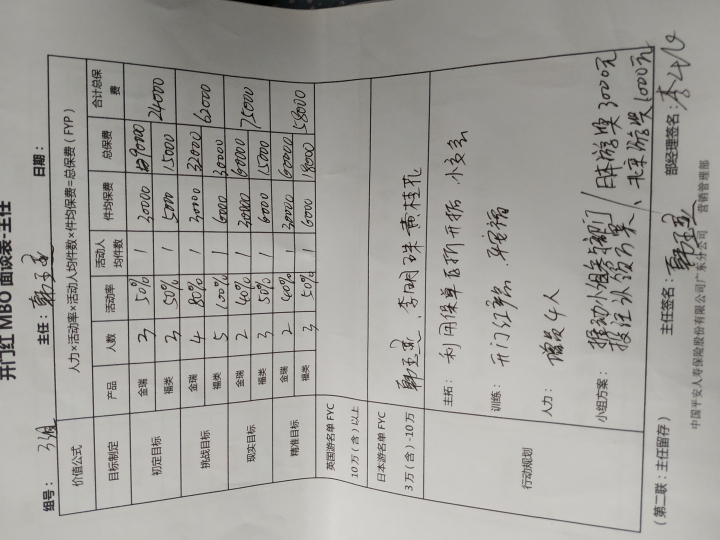 开门红 MBO 面谈表-主任
组号： 3组 主任： 日期：
价值公式 人力×活动率×活动人均件数×件均保费=总保费（FYP）
目标制定 产品 人数 活动率 活动人均件数 件均保费 总保费 合计总保费
初定目标 金瑞 3 50% 1 30000 90000 24000
福类 3 50% 1 5000 15000
挑战目标 金瑞 4 80% 1 3000 32000 62000
福类 5 100% 1 6000 30000
现实目标 金瑞 2 40% 1 30000 60000 75000
福类 3 50% 1 6000 15000
精准目标 金瑞 2 40% 1 20000 40000 58000
福类 3 50% 1 6000 18000
英国游名单 FYC
10万（含）以上
日本游名单 FYC
3万（含）-10万 李明珠 黄桂花
行动规划
主拓： 利用保单 开拓 小交会
训练： 开门红产品 平安福
人力： 增员4人
小组方案： 推动小组参与部门 日本游奖3000元
投注认领方案、 未来游奖1000元
主任签名： 部经理签名：
（第二联：主任留存） 中国平安人寿保险股份有限公司广东分公司 营销管理部